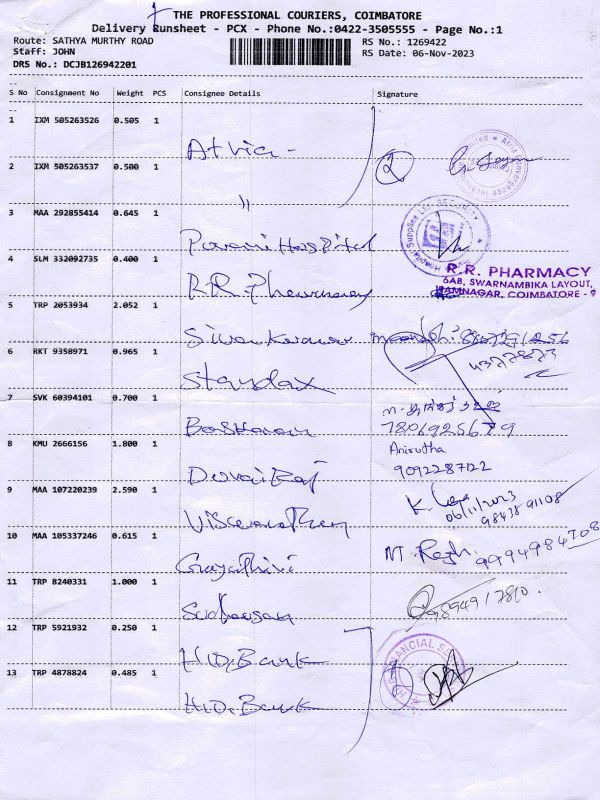 THE PROFESSIONAL COURIERS, COIMBATORE
Delivery Runsheet - PCX - Phone No.:0422-3505555 - Page No.:1
Route: SATHYA MURTHY ROAD
RS No.: 1269422
Staff: JOHN
RS Date: 06-Nov-2023
DRS No.: DCJB126942201
S No Consignment No Weight PCS Consignee Details Signature
1 IXM 505263526 0.505 1 Atria -
2 IXM 505263537 0.500 1 "
2
3 MAA 292855414 0.645 1 Hospital
4 SLM 332092735 0.400 1 R.R. Pharmacy
R.R. PHARMACY
6AB, SWARNAMBIKA LAYOUT,
RAMNAGAR, COIMBATORE - 9
5 TRP 2053934 2.052 1
6 RKT 9358971 0.965 1 Standax
7 SVK 60394101 0.700 1 Baskaran
7806925679
8 KMU 2666156 1.800 1 Durai Raj
Anirutha
9092287122
9 MAA 107220239 2.590 1
06/11/2023
98438 91108
10 MAA 105337246 0.615 1 Gayathiri
9994984708
11 TRP 8240331 1.000 1
9894917810.
12 TRP 5921932 0.250 1 H.D. Bank
13 TRP 4878824 0.485 1 H.D. Bank